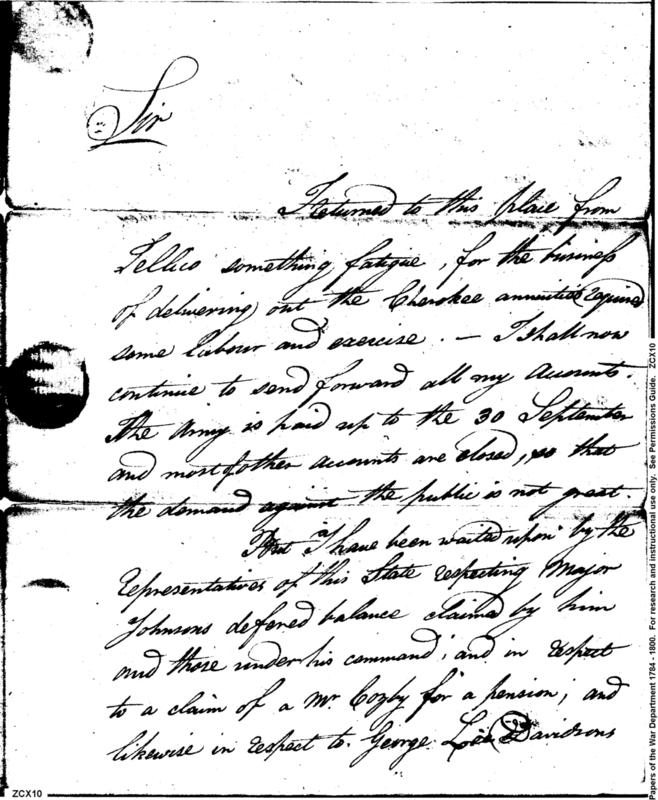 Sir
I returned to this place from
Tellico something fatigue, for the business
of delivering out the Cherokee annuities required
some labour and exercise. — I shall now
continue to send forward all my Accounts.
The Army is paid up to the 30 September
and most of other accounts are closed, so that
the demand against the public is not great.
But I have been waited upon by the
Representatives of this State respecting Major
Johnsons defered balance claimed by him
and those under his command; and in respect
to a claim of a Mr. Cozby for a pension; and
likewise in respect to George Lee Davidsons
ZCX10
Papers of the War Department 1784 - 1800. For research and instructional use only. See Permissions Guide. ZCX10